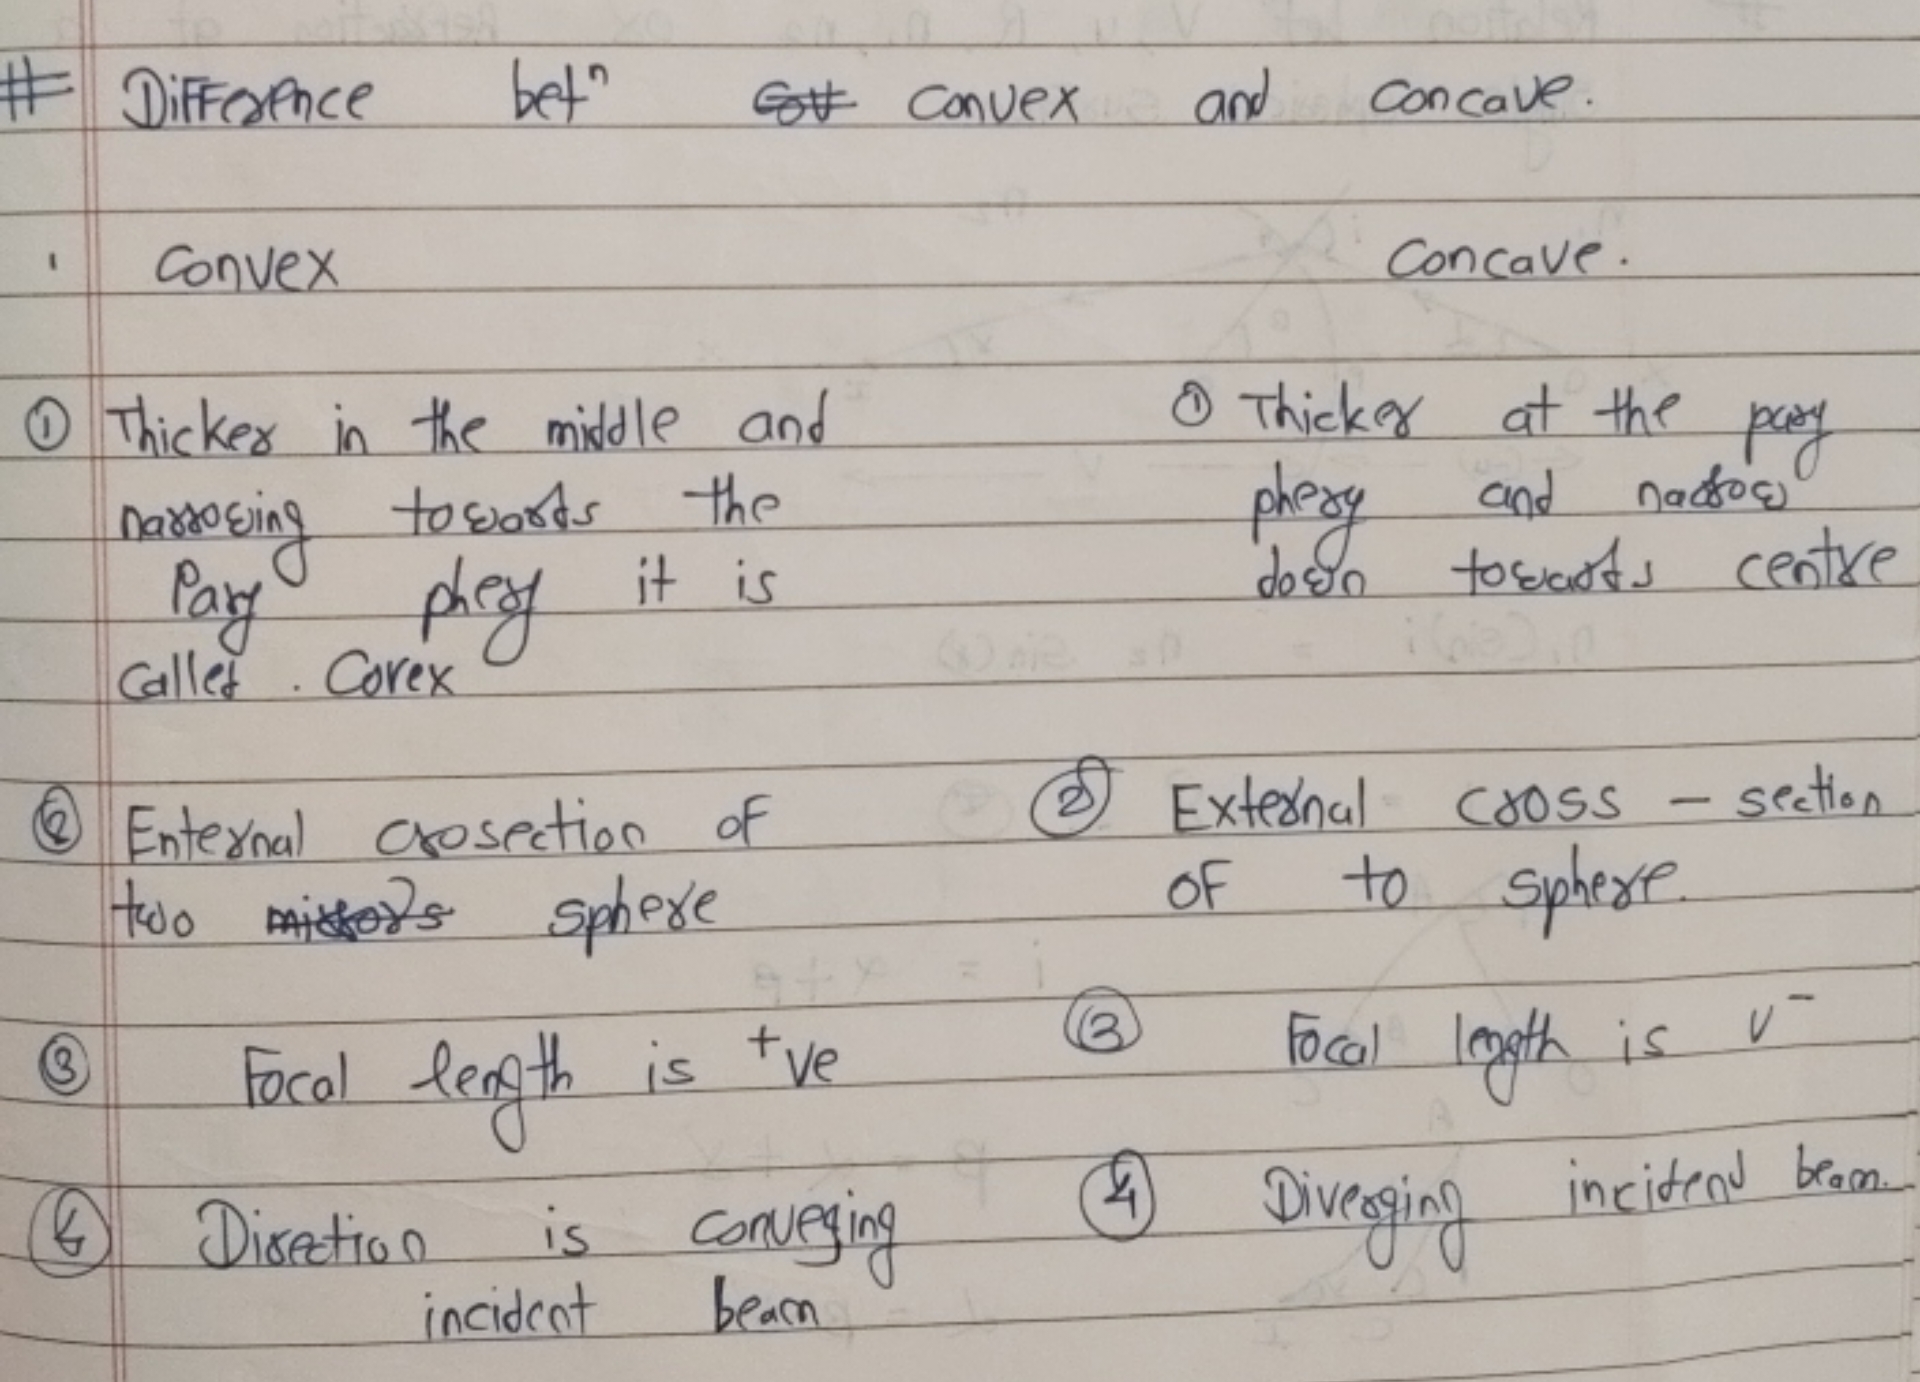 # Difference betⁿ convex and concave.
Convex
Concave.
① Thicker in the middle and
narrowing towards the
Pary phery it is
called . Corex
① Thicker at the pary
phery and narrow
down towards centre
② Enternal crosection of
two mirrors sphere
② External cross - section
of to sphere.
③ Focal length is +ve
③ Focal length is v-
④ Direction is conveging
incident beam
④ Diverging incidend beam.